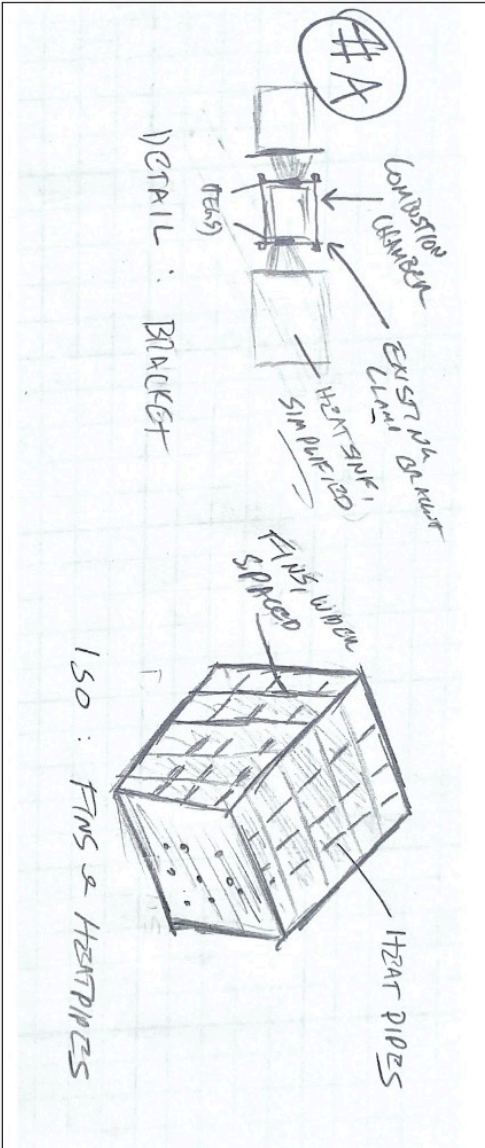 #A
COMBUSTION
CHAMBER
EXISTING
CLAMP BRACKET
HEATSINK,
SIMPLIFIED
(TEGS)
DETAIL : BRACKET
FINS, WIDER
SPACED
HEAT PIPES
ISO : FINS & HEATPIPES